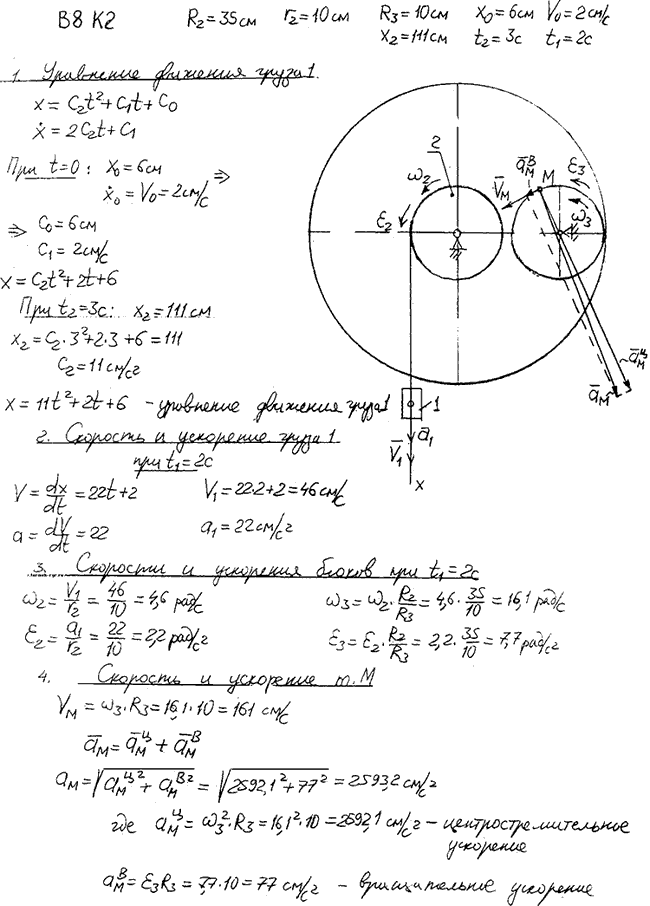 В8 К2 R₂=35см r₂=10см R₃=10см x₀=6см V₀=2см/с
x₂=111см t₂=3с t₁=2с
1. Уравнение движения груза 1.
x = C₂t²+C₁t+C₀
ẋ = 2C₂t+C₁
При t=0: x₀=6см ⇒
ẋ₀=V₀=2см/с
⇒ C₀=6см
C₁=2см/с
x=C₂t²+2t+6
При t₂=3с: x₂=111см
x₂=C₂·3²+2·3+6=111
C₂=11см/с²
x=11t²+2t+6 – уравнение движения груза 1
2 ω₂ ε₂ V̄м āмᴮ М ε₃ ω₃
āмᶸ āм
1 ā₁ V̄₁ x
2. Скорость и ускорение груза 1
при t₁=2с
V=dx/dt=22t+2 V₁=22·2+2=46см/с
a=dV/dt=22 a₁=22см/с²
3. Скорости и ускорения блоков при t₁=2с
ω₂=V₁/r₂=46/10=4,6 рад/с ω₃=ω₂·R₂/R₃=4,6·35/10=16,1 рад/с
ε₂=a₁/r₂=22/10=2,2 рад/с² ε₃=ε₂·R₂/R₃=2,2·35/10=7,7 рад/с²
4. Скорость и ускорение т.М
Vм=ω₃·R₃=16,1·10=161 см/с
āм=āмц+āмв
aм=√(aмц²+aмв²)=√(2592,1²+77²)=2593,2см/с²
где aмц=ω₃²·R₃=16,1²·10=2592,1 см/с² – центростремительное
ускорение
aмв=ε₃R₃=7,7·10=77 см/с² – вращательное ускорение